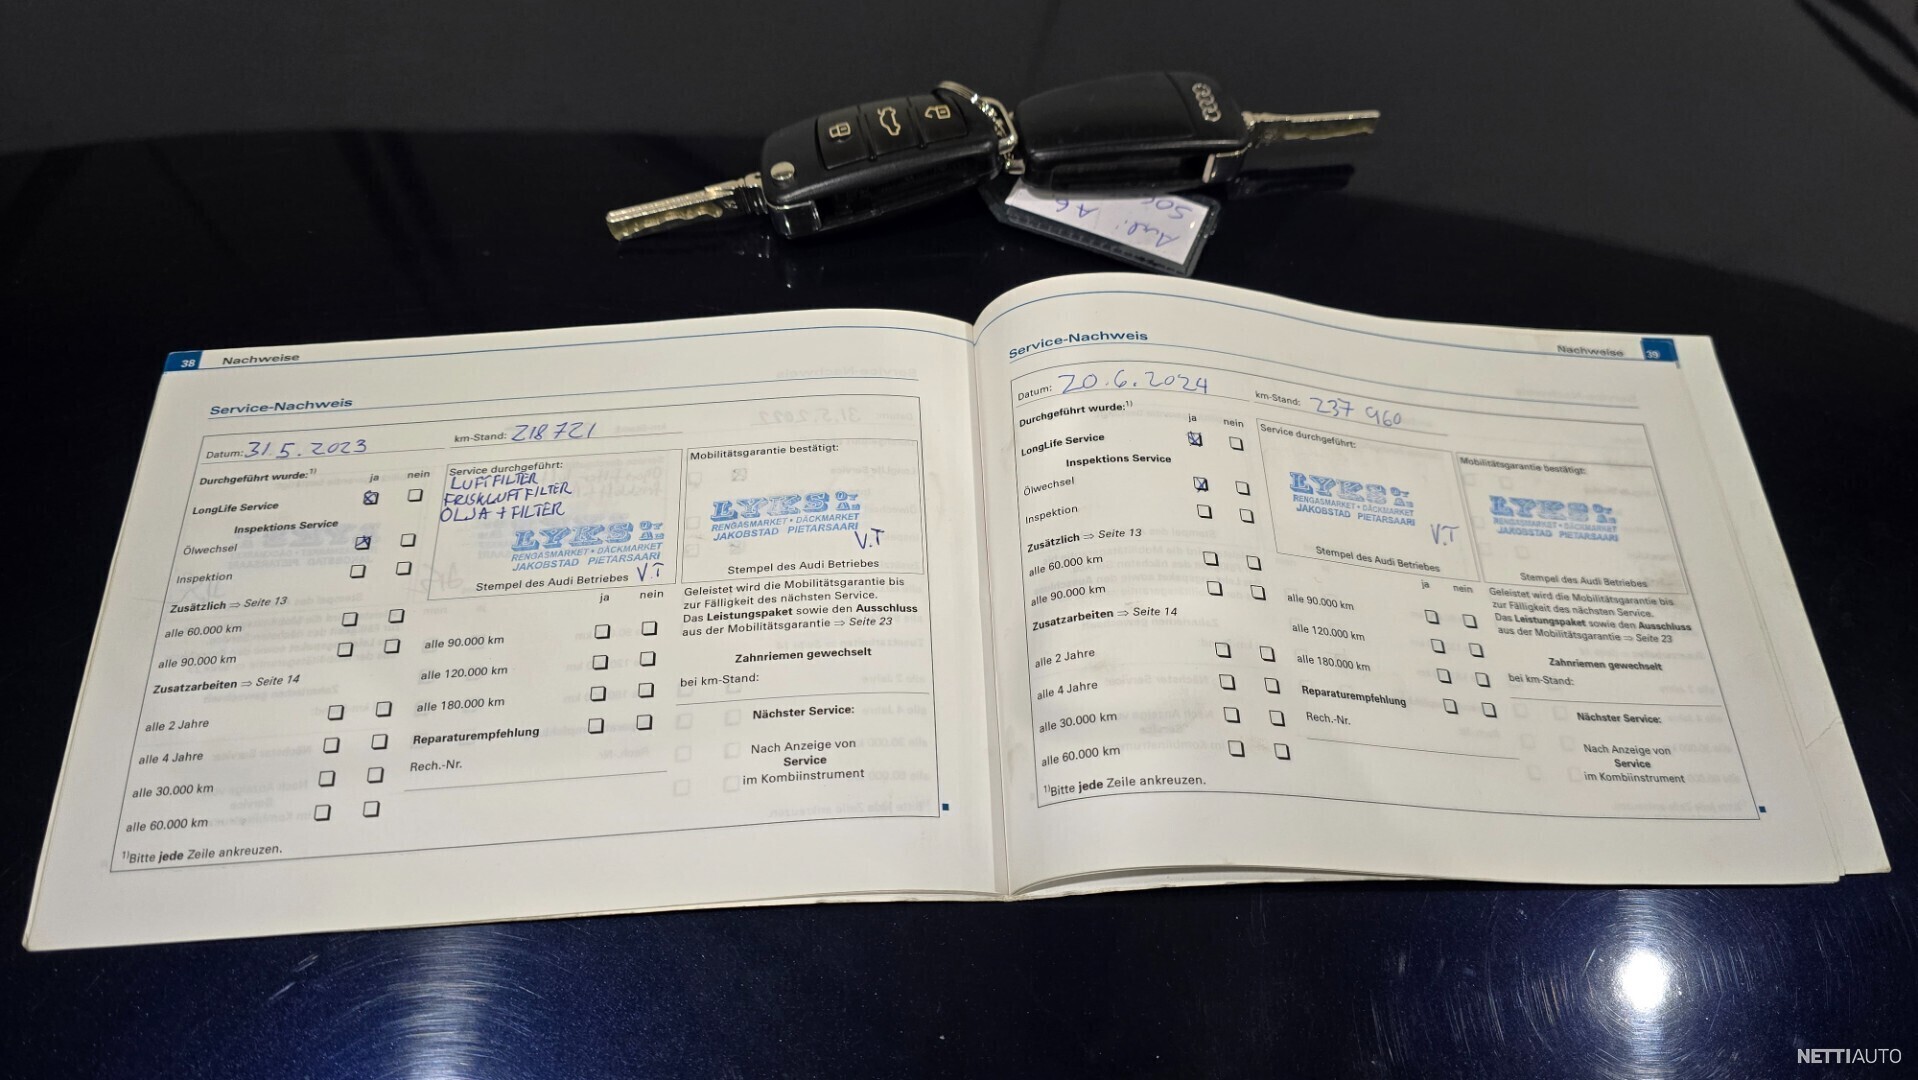 Audi A6
38 Nachweise
Service-Nachweis
Datum: 31.5.2023
km-Stand: 218 721
Durchgeführt wurde:1)
ja nein
LongLife Service
Inspektions Service
Ölwechsel
Inspektion
Zusätzlich ⇒ Seite 13
alle 60.000 km
alle 90.000 km
Zusatzarbeiten ⇒ Seite 14
alle 2 Jahre
alle 4 Jahre
alle 30.000 km
alle 60.000 km
1)Bitte jede Zeile ankreuzen.
Service durchgeführt:
LUFTFILTER
FRISKLUFTFILTER
OLJA + FILTER
LYKS OY AB
RENGASMARKET • DÄCKMARKET
JAKOBSTAD PIETARSAARI
Stempel des Audi Betriebes V.T
ja nein
alle 90.000 km
alle 120.000 km
alle 180.000 km
Reparaturempfehlung
Rech.-Nr.
Mobilitätsgarantie bestätigt:
LYKS OY AB
RENGASMARKET • DÄCKMARKET
JAKOBSTAD PIETARSAARI
V.T
Stempel des Audi Betriebes
Geleistet wird die Mobilitätsgarantie bis
zur Fälligkeit des nächsten Service.
Das Leistungspaket sowie den Ausschluss
aus der Mobilitätsgarantie ⇒ Seite 23
Zahnriemen gewechselt
bei km-Stand:
Nächster Service:
Nach Anzeige von
Service
im Kombiinstrument
Nachweise 39
Service-Nachweis
Datum: 20.6.2024
km-Stand: 237 960
Durchgeführt wurde:1)
ja nein
LongLife Service
Inspektions Service
Ölwechsel
Inspektion
Zusätzlich ⇒ Seite 13
alle 60.000 km
alle 90.000 km
Zusatzarbeiten ⇒ Seite 14
alle 2 Jahre
alle 4 Jahre
alle 30.000 km
alle 60.000 km
1)Bitte jede Zeile ankreuzen.
Service durchgeführt:
LYKS OY AB
RENGASMARKET • DÄCKMARKET
JAKOBSTAD PIETARSAARI
V.T
Stempel des Audi Betriebes
ja nein
alle 90.000 km
alle 120.000 km
alle 180.000 km
Reparaturempfehlung
Rech.-Nr.
Mobilitätsgarantie bestätigt:
LYKS OY AB
RENGASMARKET • DÄCKMARKET
JAKOBSTAD PIETARSAARI
Stempel des Audi Betriebes
Geleistet wird die Mobilitätsgarantie bis
zur Fälligkeit des nächsten Service.
Das Leistungspaket sowie den Ausschluss
aus der Mobilitätsgarantie ⇒ Seite 23
Zahnriemen gewechselt
bei km-Stand:
Nächster Service:
Nach Anzeige von
Service
im Kombiinstrument
NETTIAUTO